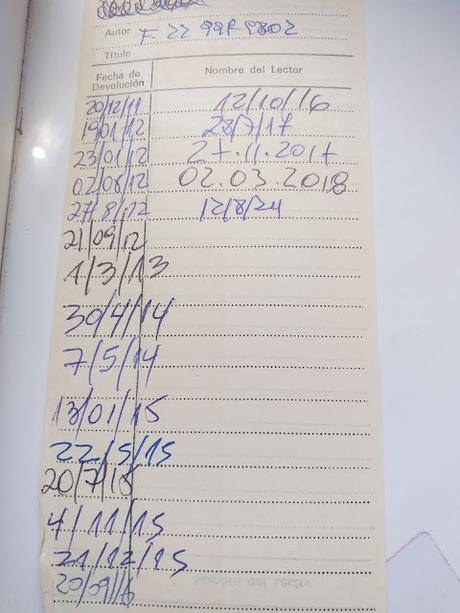 Autor F 22 99P 9802
Título
Fecha de Devolución Nombre del Lector
20/12/11 12/10/16
19/01/12 28/7/17
23/01/12 27.11.2017
02/08/12 02.03.2018
27/8/12 12/8/24
21/09/12
1/3/13
30/4/14
7/5/14
13/01/15
22/5/15
20/7/15
4/11/15
21/12/15
20/09/16